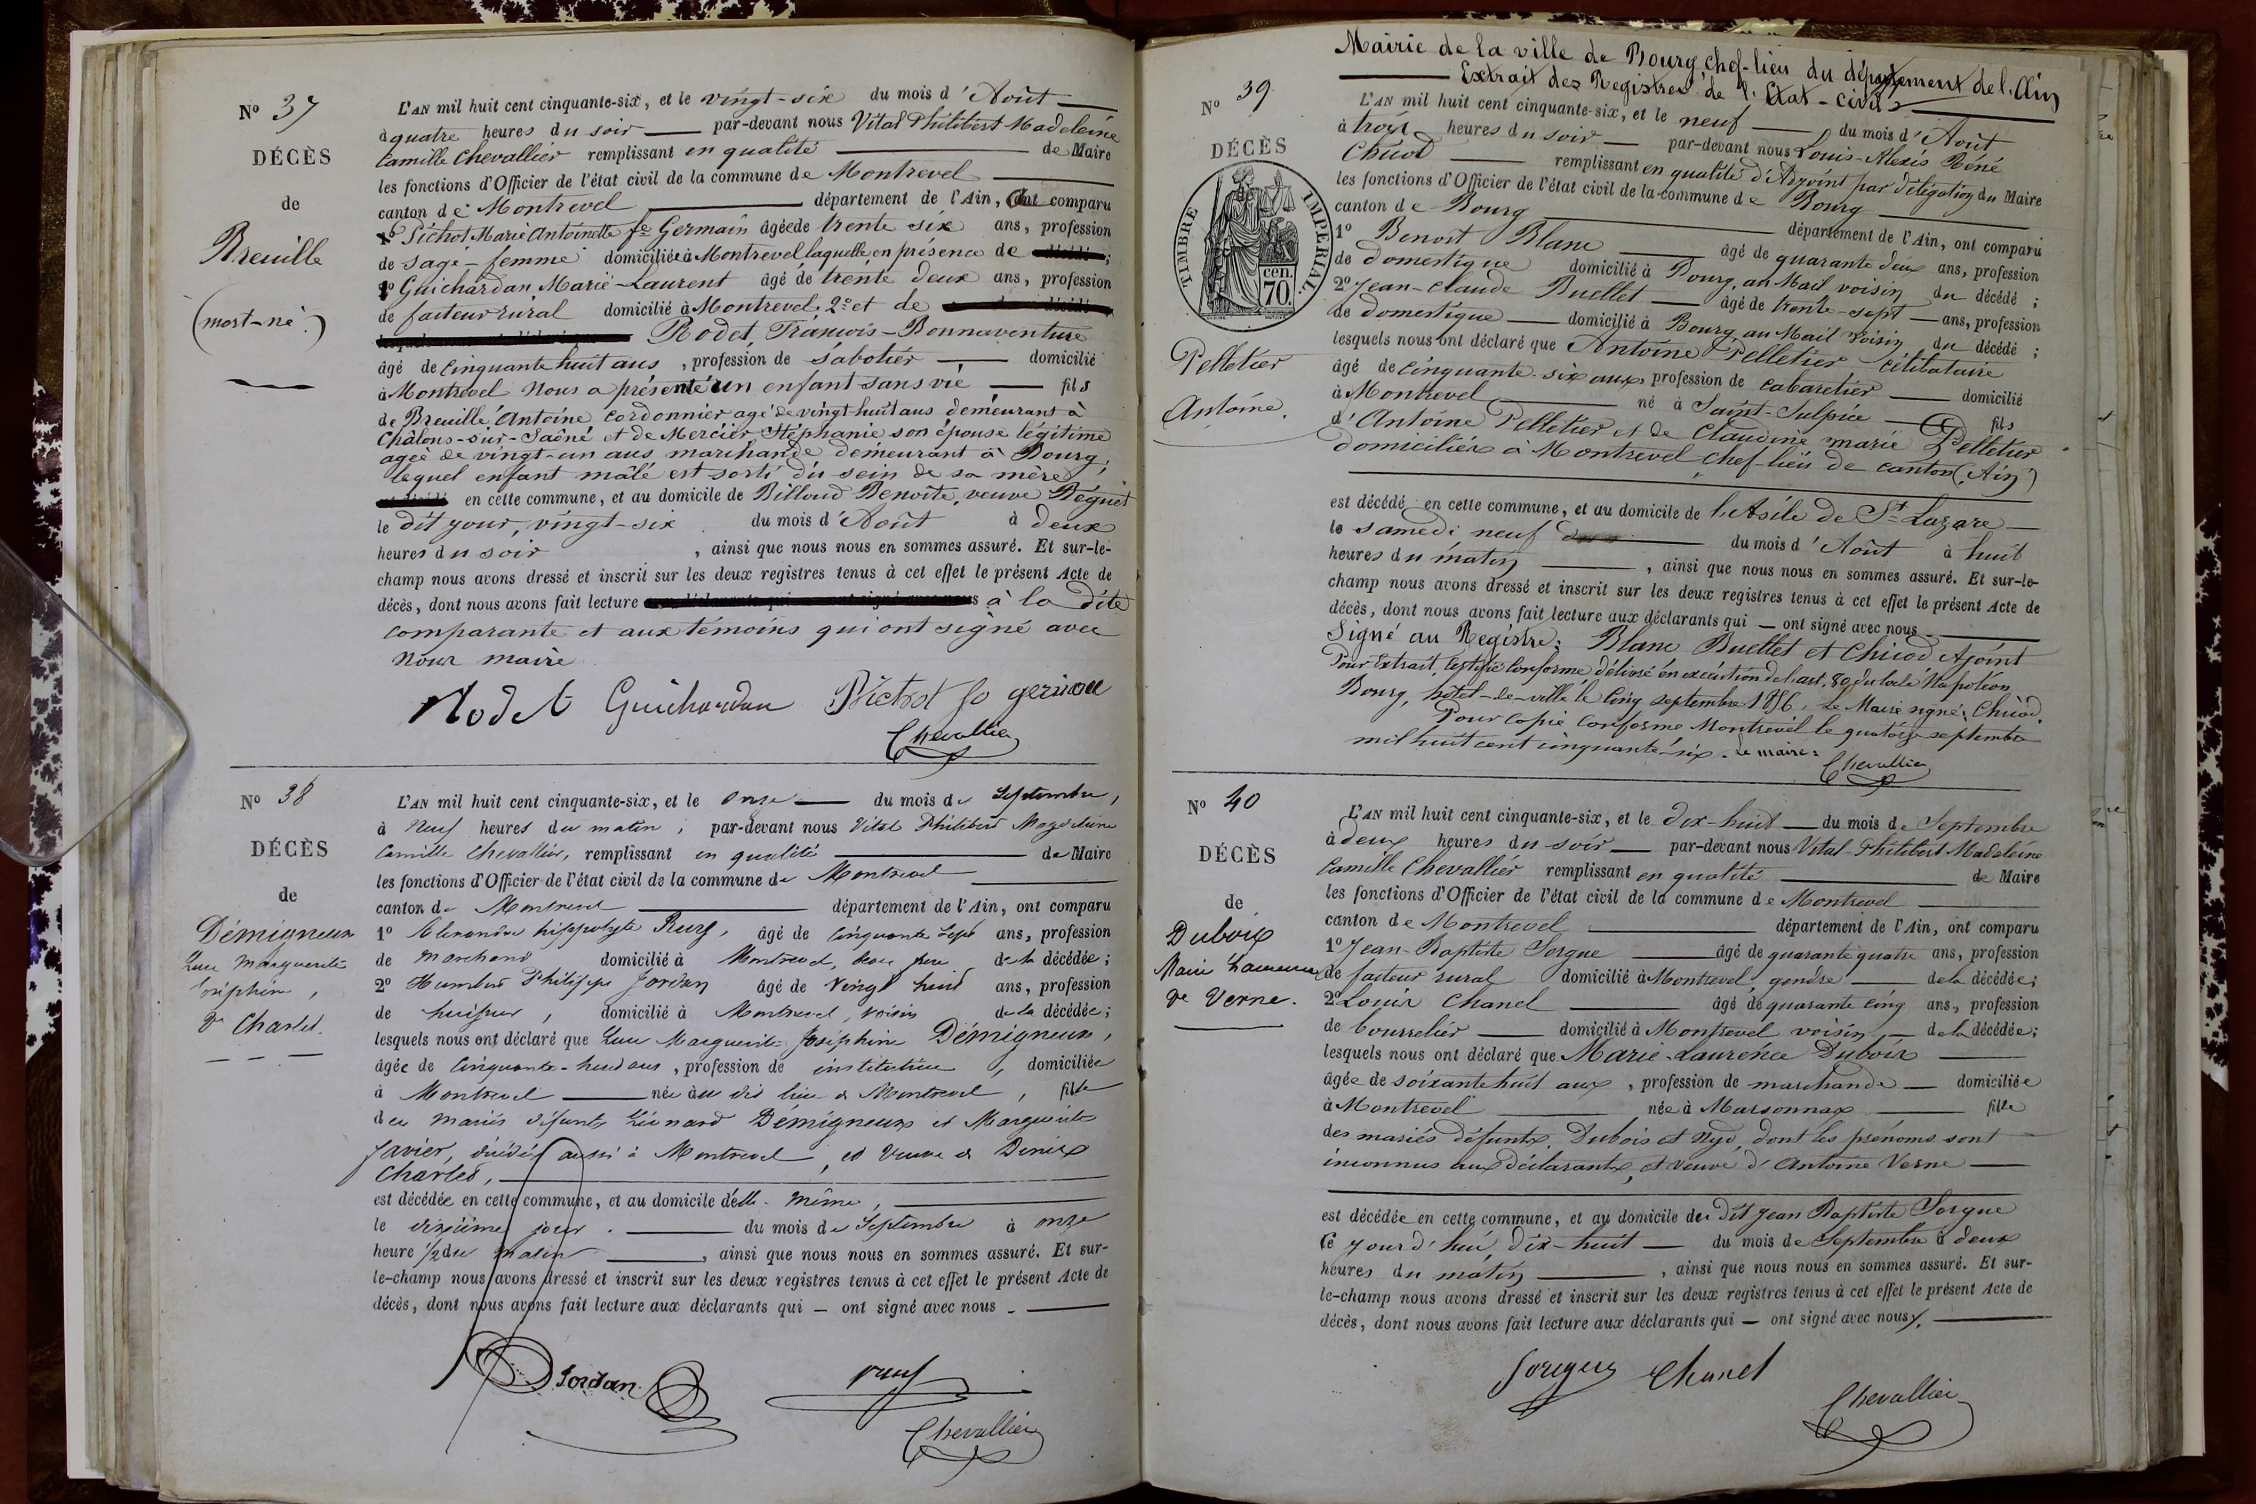 N° 37
DÉCÈS
de
Breuille
(mort-né)
L'AN mil huit cent cinquante-six, et le vingt-six du mois d'Août
à quatre heures du soir par-devant nous Vital Philibert Madeleine
Camille Chevallier remplissant en qualité de Maire
les fonctions d'Officier de l'état civil de la commune de Montrevel
canton de Montrevel département de l'Ain, comparu
Pichot Marie Antoinette fe Germain âgée de trente six ans, profession
de sage-femme domiciliée à Montrevel laquelle en présence de
1° Guichardan Marie-Laurent âgé de trente deux ans, profession
de facteur rural domicilié à Montrevel, 2° et de
Rodet, François-Bonnaventure
âgé de cinquante huit ans, profession de sabotier domicilié
à Montrevel nous a présenté un enfant sans vie fils
de Breuille Antoine cordonnier agé de vingt huit ans demeurant à
Châlons-sur-Saône et de Mercier Stéphanie son épouse légitime
agée de vingt-un ans marchande demeurant à Bourg,
lequel enfant mâle est sorti du sein de sa mère
en cette commune, et au domicile de Billoud Benoîte, veuve Béguet
le dit jour, vingt-six du mois d'Août à deux
heures du soir, ainsi que nous nous en sommes assuré. Et sur-le-
champ nous avons dressé et inscrit sur les deux registres tenus à cet effet le présent Acte de
décès, dont nous avons fait lecture à la dite
comparante et aux témoins qui ont signé avec
nous maire
Rodet Guichardan Pichot fe germain
Chevallier
N° 38
DÉCÈS
de
Démigneux
Marguerite
Joséphine,
Ve Charles.
L'AN mil huit cent cinquante-six, et le onze du mois de Septembre,
à neuf heures du matin, par-devant nous Vital Philibert Magdeleine
Camille Chevallier, remplissant en qualité de Maire
les fonctions d'Officier de l'état civil de la commune de Montrevel
canton de Montrevel département de l'Ain, ont comparu
1° Alexandre hippolyte, âgé de cinquante sept ans, profession
de marchand domicilié à Montrevel, beau frère de la décédée;
2° Humbert Philippe Jordan âgé de vingt huit ans, profession
de huissier, domicilié à Montrevel, voisin de la décédée;
lesquels nous ont déclaré que Marguerite Joséphine Démigneux,
âgée de cinquante-huit ans, profession de institutrice, domiciliée
à Montrevel née au dit lieu de Montrevel, fille
des mariés défunts Léonard Démigneux et Marguerite
Javier, décédés aussi à Montrevel, et veuve de Denis
Charles,
est décédée en cette commune, et au domicile d'elle-même,
le dixième jour du mois de Septembre à onze
heure 1/2 du matin, ainsi que nous nous en sommes assuré. Et sur-
le-champ nous avons dressé et inscrit sur les deux registres tenus à cet effet le présent Acte de
décès, dont nous avons fait lecture aux déclarants qui — ont signé avec nous
Jordan
Chevallier
Mairie de la ville de Bourg chef-lieu du département de l'Ain
Extrait des Registres de l'Etat-civil
N° 39
DÉCÈS
TIMBRE IMPERIAL
cen.
70.
Pelletier
Antoine.
L'AN mil huit cent cinquante-six, et le neuf du mois d'Août
à trois heures du soir par-devant nous Louis-Alexis Réné
Chicod remplissant en qualité d'Adjoint par délégation du Maire
les fonctions d'Officier de l'état civil de la commune de Bourg
canton de Bourg département de l'Ain, ont comparu
1° Benoit Blanc âgé de quarante deux ans, profession
de domestique domicilié à Bourg, au Mail voisin du décédé;
2° Jean-Claude Buellet âgé de trente-sept ans, profession
de domestique domicilié à Bourg, au Mail voisin du décédé;
lesquels nous ont déclaré que Antoine Pelletier célibataire
âgé de cinquante-six ans, profession de cabaretier domicilié
à Montrevel né à Saint-Sulpice fils
d'Antoine Pelletier et de Claudine marie Pelletier
domiciliés à Montrevel, chef-lieu de canton (Ain)
est décédé en cette commune, et au domicile de l'Asile de St Lazare
le samedi neuf du mois d'Août à huit
heures du matin, ainsi que nous nous en sommes assuré. Et sur-le-
champ nous avons dressé et inscrit sur les deux registres tenus à cet effet le présent Acte de
décès, dont nous avons fait lecture aux déclarants qui — ont signé avec nous
Signé au Registre: Blanc Buellet et Chicod Ajoint
Pour Extrait certifié conforme délivré en exécution de l'art. 80 du code Napoléon
Bourg, hôtel-de-ville le cinq septembre 1856. Le Maire signé: Chicod.
Pour copie conforme Montrevel le quatorze septembre
mil huit cent cinquante-six. Le maire:
Chevallier
N° 40
DÉCÈS
de
Dubois
Marie Laurence
ve Verne.
L'AN mil huit cent cinquante-six, et le dix-huit du mois de Septembre
à deux heures du soir par-devant nous Vital-Philibert Madeleine
Camille Chevallier remplissant en qualité de Maire
les fonctions d'Officier de l'état civil de la commune de Montrevel
canton de Montrevel département de l'Ain, ont comparu
1° Jean-Baptiste Sorgue âgé de quarante quatre ans, profession
de facteur rural domicilié à Montrevel, gendre de la décédée;
2° Louis Chanel âgé de quarante cinq ans, profession
de bourrelier domicilié à Montrevel voisin de la décédée;
lesquels nous ont déclaré que Marie-Laurence Dubois
âgée de soixante huit ans, profession de marchande domiciliée
à Montrevel née à Marsonnas fille
des mariés défunts, Dubois et Nyd, dont les prénoms sont
inconnus aux déclarants, et veuve d'Antoine Verne
est décédée en cette commune, et au domicile du dit Jean Baptiste Sorgue
ce jourd'hui, dix-huit du mois de Septembre à deux
heures du matin, ainsi que nous nous en sommes assuré. Et sur-
le-champ nous avons dressé et inscrit sur les deux registres tenus à cet effet le présent Acte de
décès, dont nous avons fait lecture aux déclarants qui — ont signé avec nous.
Sorgue Chanel
Chevallier